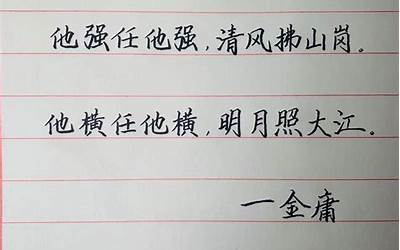 他强任他强,清风拂山岗。
他横任他横,明月照大江。
一金庸